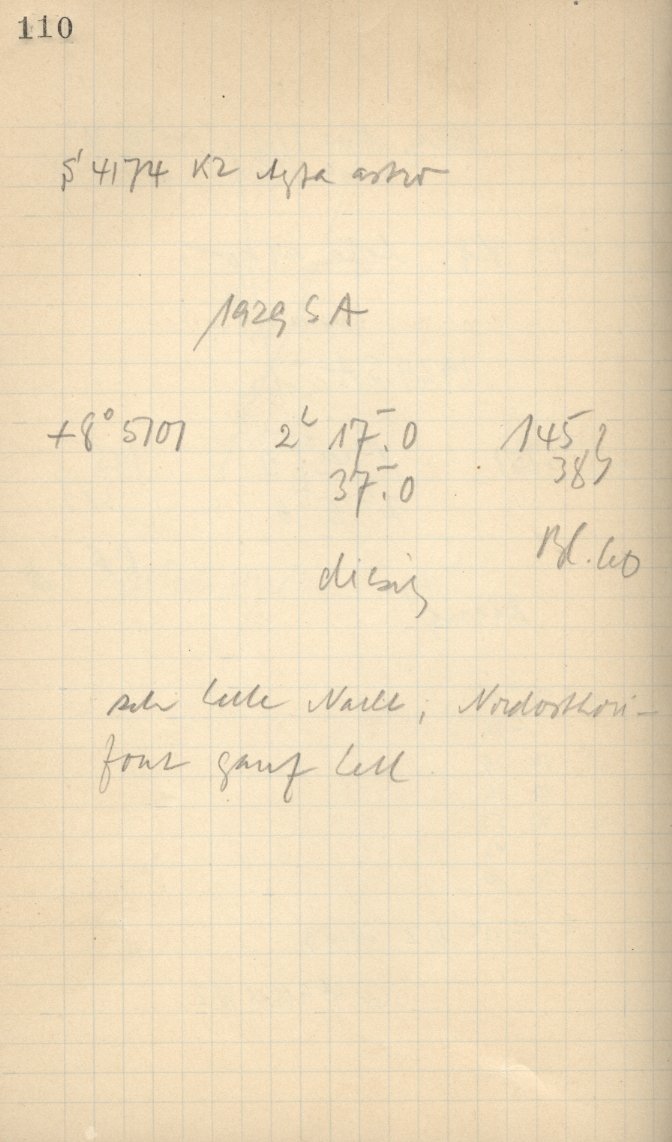 110
S 4174 K2 Agfa astro
1929 SA
+8° 5101 2h 17m.0 145
37m.0 38
Bl. 60
diesig
sehr helle Nacht; Nordosthori-
zont ganz hell